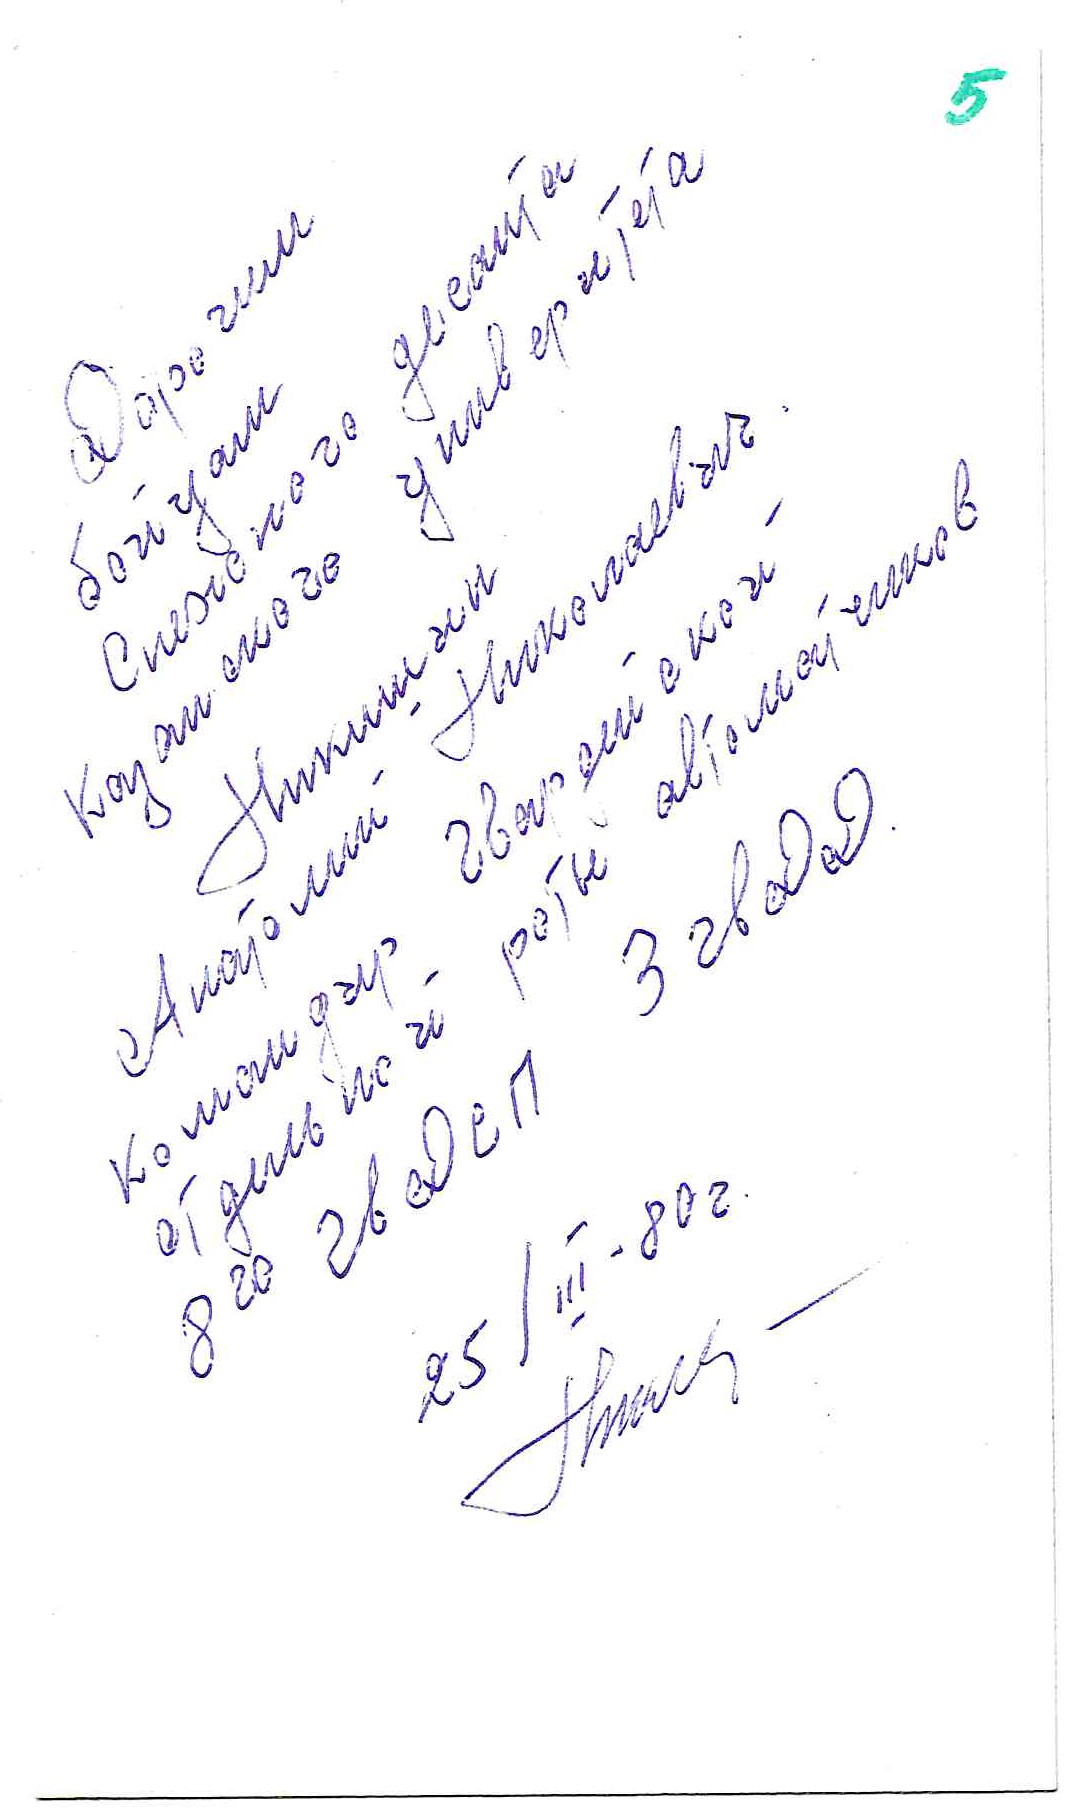 5
Дорогим
бойцам
Снежного десанта
Казанского университета
Никишин
Анатолий Николаевич.
Командир гвардейской
отдельной роты автоматчиков
8 го гв ВДСП 3 гв ВДД.
25/III-80 г.